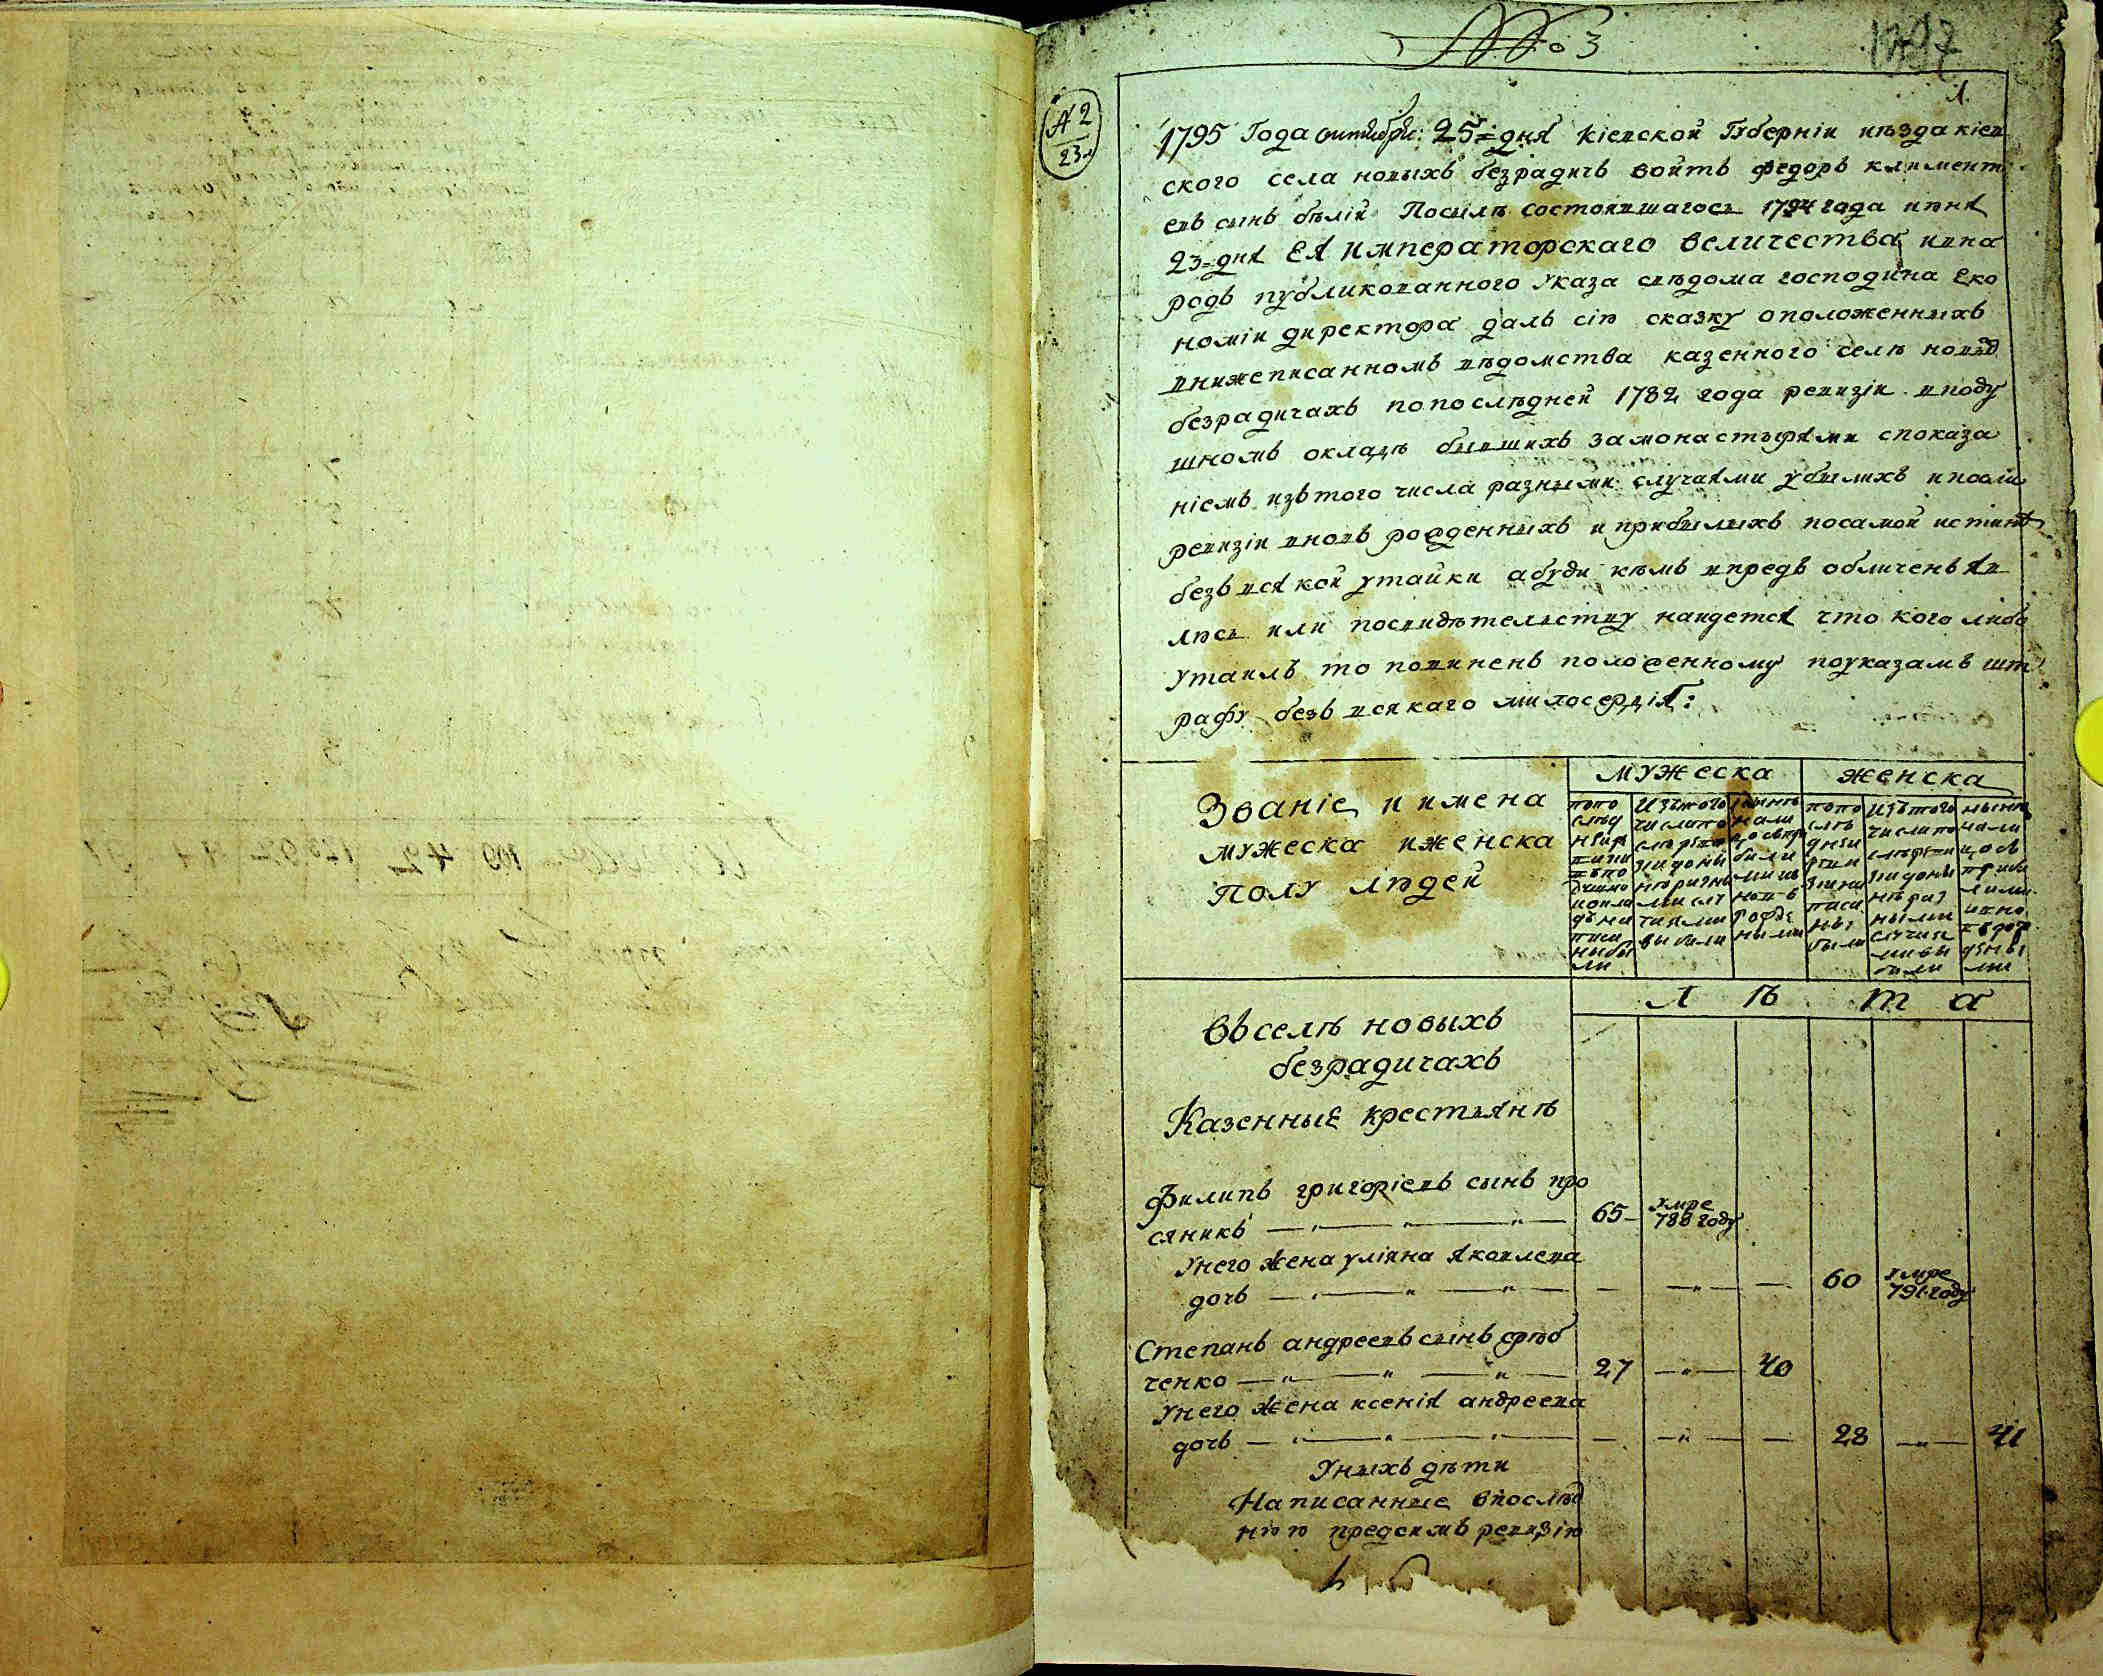 № 3
1797
1
А 2
23
1795 Года октября 25= дня кіевской Губерніи уѣзда кіев
ского села новыхъ безрадичъ войтъ федоръ климент
евъ сынъ бѣлій Посилѣ состоявшагось 1794 года июня
23= дня ЕЯ императорскаго величества ивна
родъ публикованного указа свѣдома господина Еко
номіи директора далъ сію сказку оположенныхъ
внижеписанномъ вѣдомства казенного селѣ новыхъ
безрадичахъ попослѣдней 1782 года ревизіи вподу
шномъ окладѣ бывшихъ замонастырями споказа
ніемъ изътого числа разными случаями убылихъ ипослѣ
ревизіи вновъ рожденныхъ и прибылыхъ посамой истинѣ
безъ всякой утайки абуди кѣмъ впредъ обличенъ яв
люсь или посвидѣтелству найдется что кого либо
утаилъ то повиненъ положенному поуказамъ шт
рафу безъ всякаго милосердія:
Званіе и имена
мужеска иженска
полу людей
мужеска женска
попо слѣд ней ре визіи въпо душно мокла дѣ на писа ны бы ли
Изътого числапо слѣ ревизіидоны нѣ разны ми слу чаями выбыли
нынѣ нали цо съпри были ми ив новъ рожде ными
попо слѣ дней ревизіи на писа ны были
изътого числапо слѣревизіидоны нѣ раз ными случая ми вы были
нынѣ нали цо съ прибы лими ивно въ рож дены ми
Л Ѣ т а
въселѣ новыхъ
безрадичахъ
Казенные крестьянѣ
Филипъ григоріевъ сынъ про
сяникъ — „ — „ — „ — 65 — умре 788 году
Унего жена уліяна яковлева
дочъ — „ — „ — „ — — „ — — 60 умре 791 году
Степанъ андреевъ сынъ срѣб
ченко — „ — „ — „ — 27 — „ — 40
Унего жена ксенія андреева
дочъ — „ — „ — „ — — „ — — 28 — „ — 41
Унихъ дѣти
Написанные впослѣд
нюю предсимъ ревизію